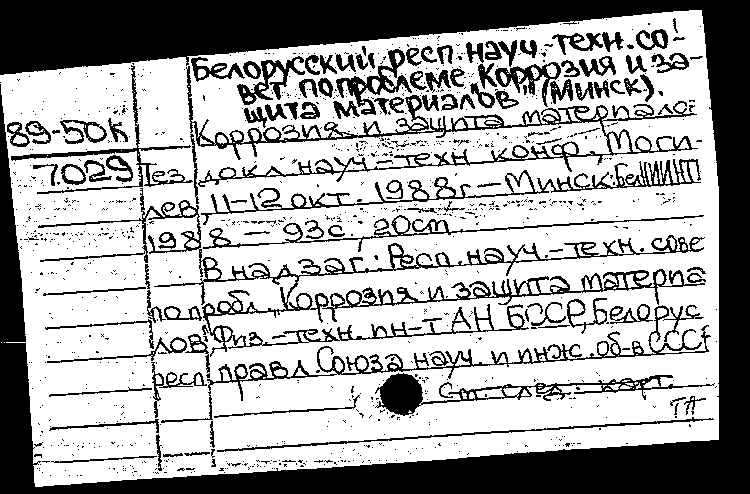 Белорусский респ. науч.-техн. со-
вет по проблеме „Коррозия и за-
щита материалов" (Минск).
89-50К Коррозия и защита материалов
7029 Тез. докл. науч-техн конф., Моги-
лев, 11-12 окт. 1988г – Минск: БелНИИНТИ
1988. – 93с ; 20см
В надзаг.: Респ. науч.-техн. сове
по пробл. „Коррозия и защита материа
лов, Физ.-техн. ин-т АН БССР, Белорус
респ. правл. Союза науч. и инж. об-в СССР
См. след. карт.